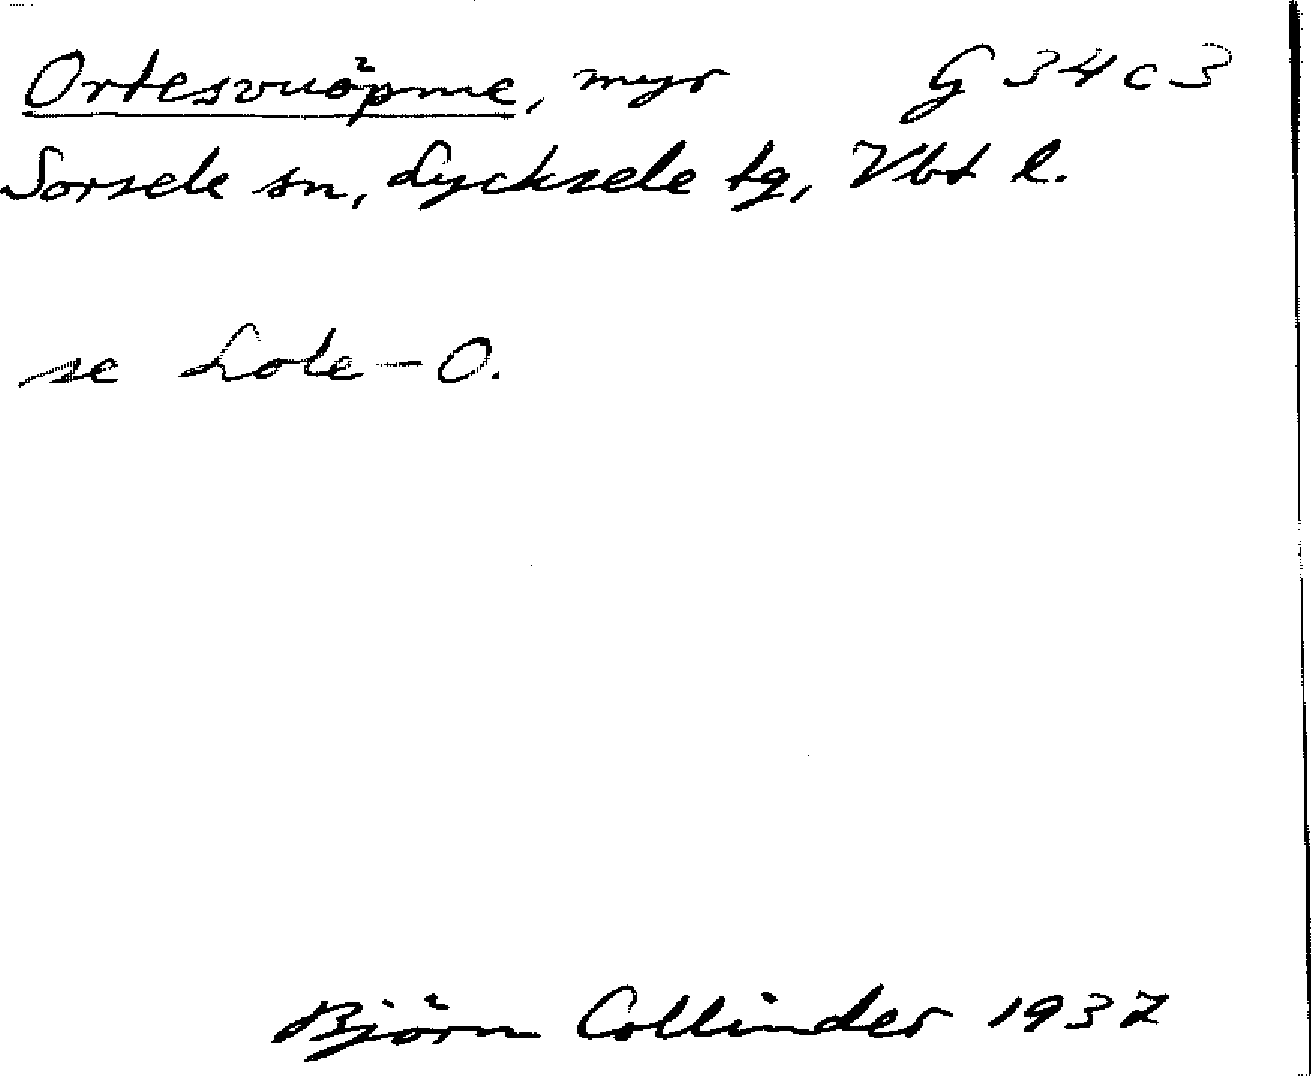 Ortesvuöpme, myr G 34 c 3
Sorsele sn, Lycksele tg, Vbt l.
se Lole-O.
Björn Collinder 1937